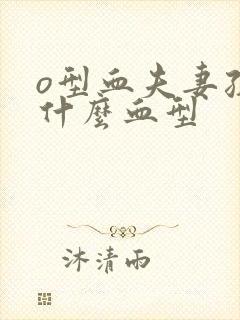 o型血夫妻孩
什麼血型
沐清雨